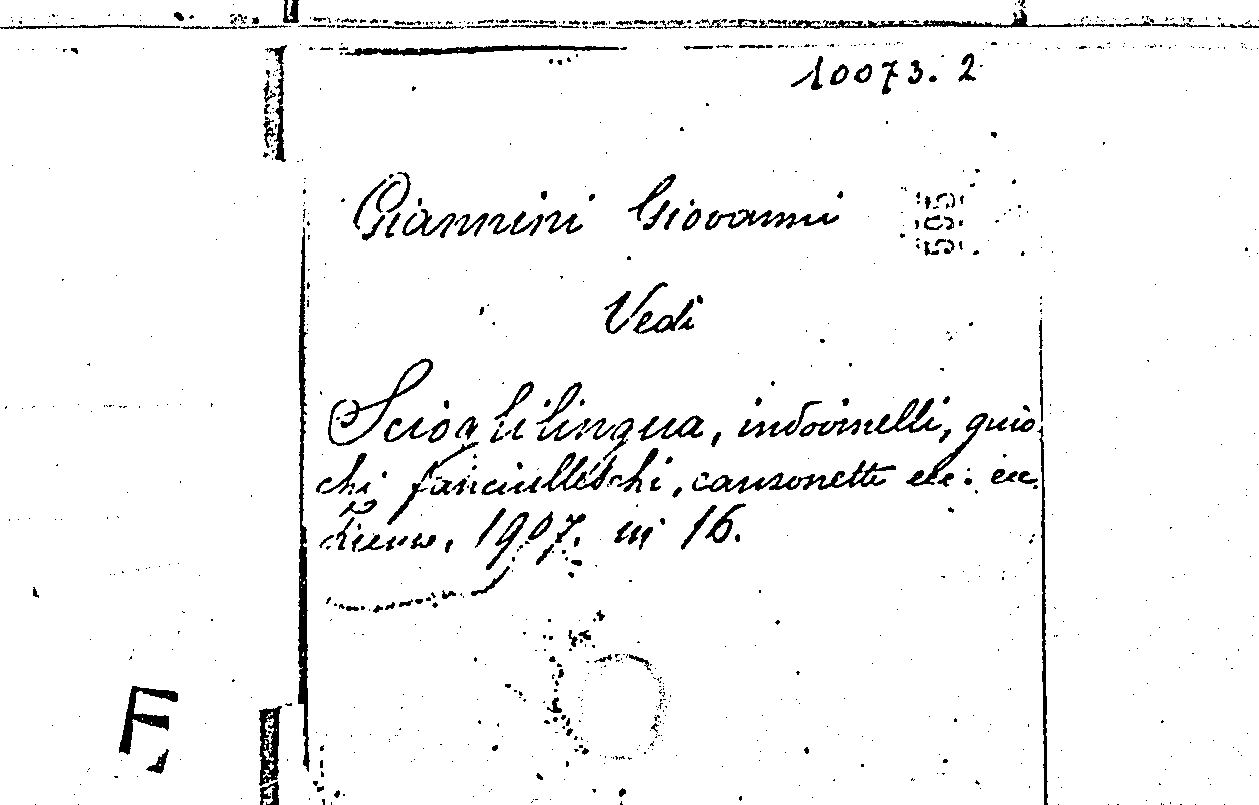 10073. 2
Giannini Giovanni
595
Vedi
Scioglilingua, indovinelli, giuo-
chi fanciulleschi, canzonette ecc. ecc.
1907. in 16.
F